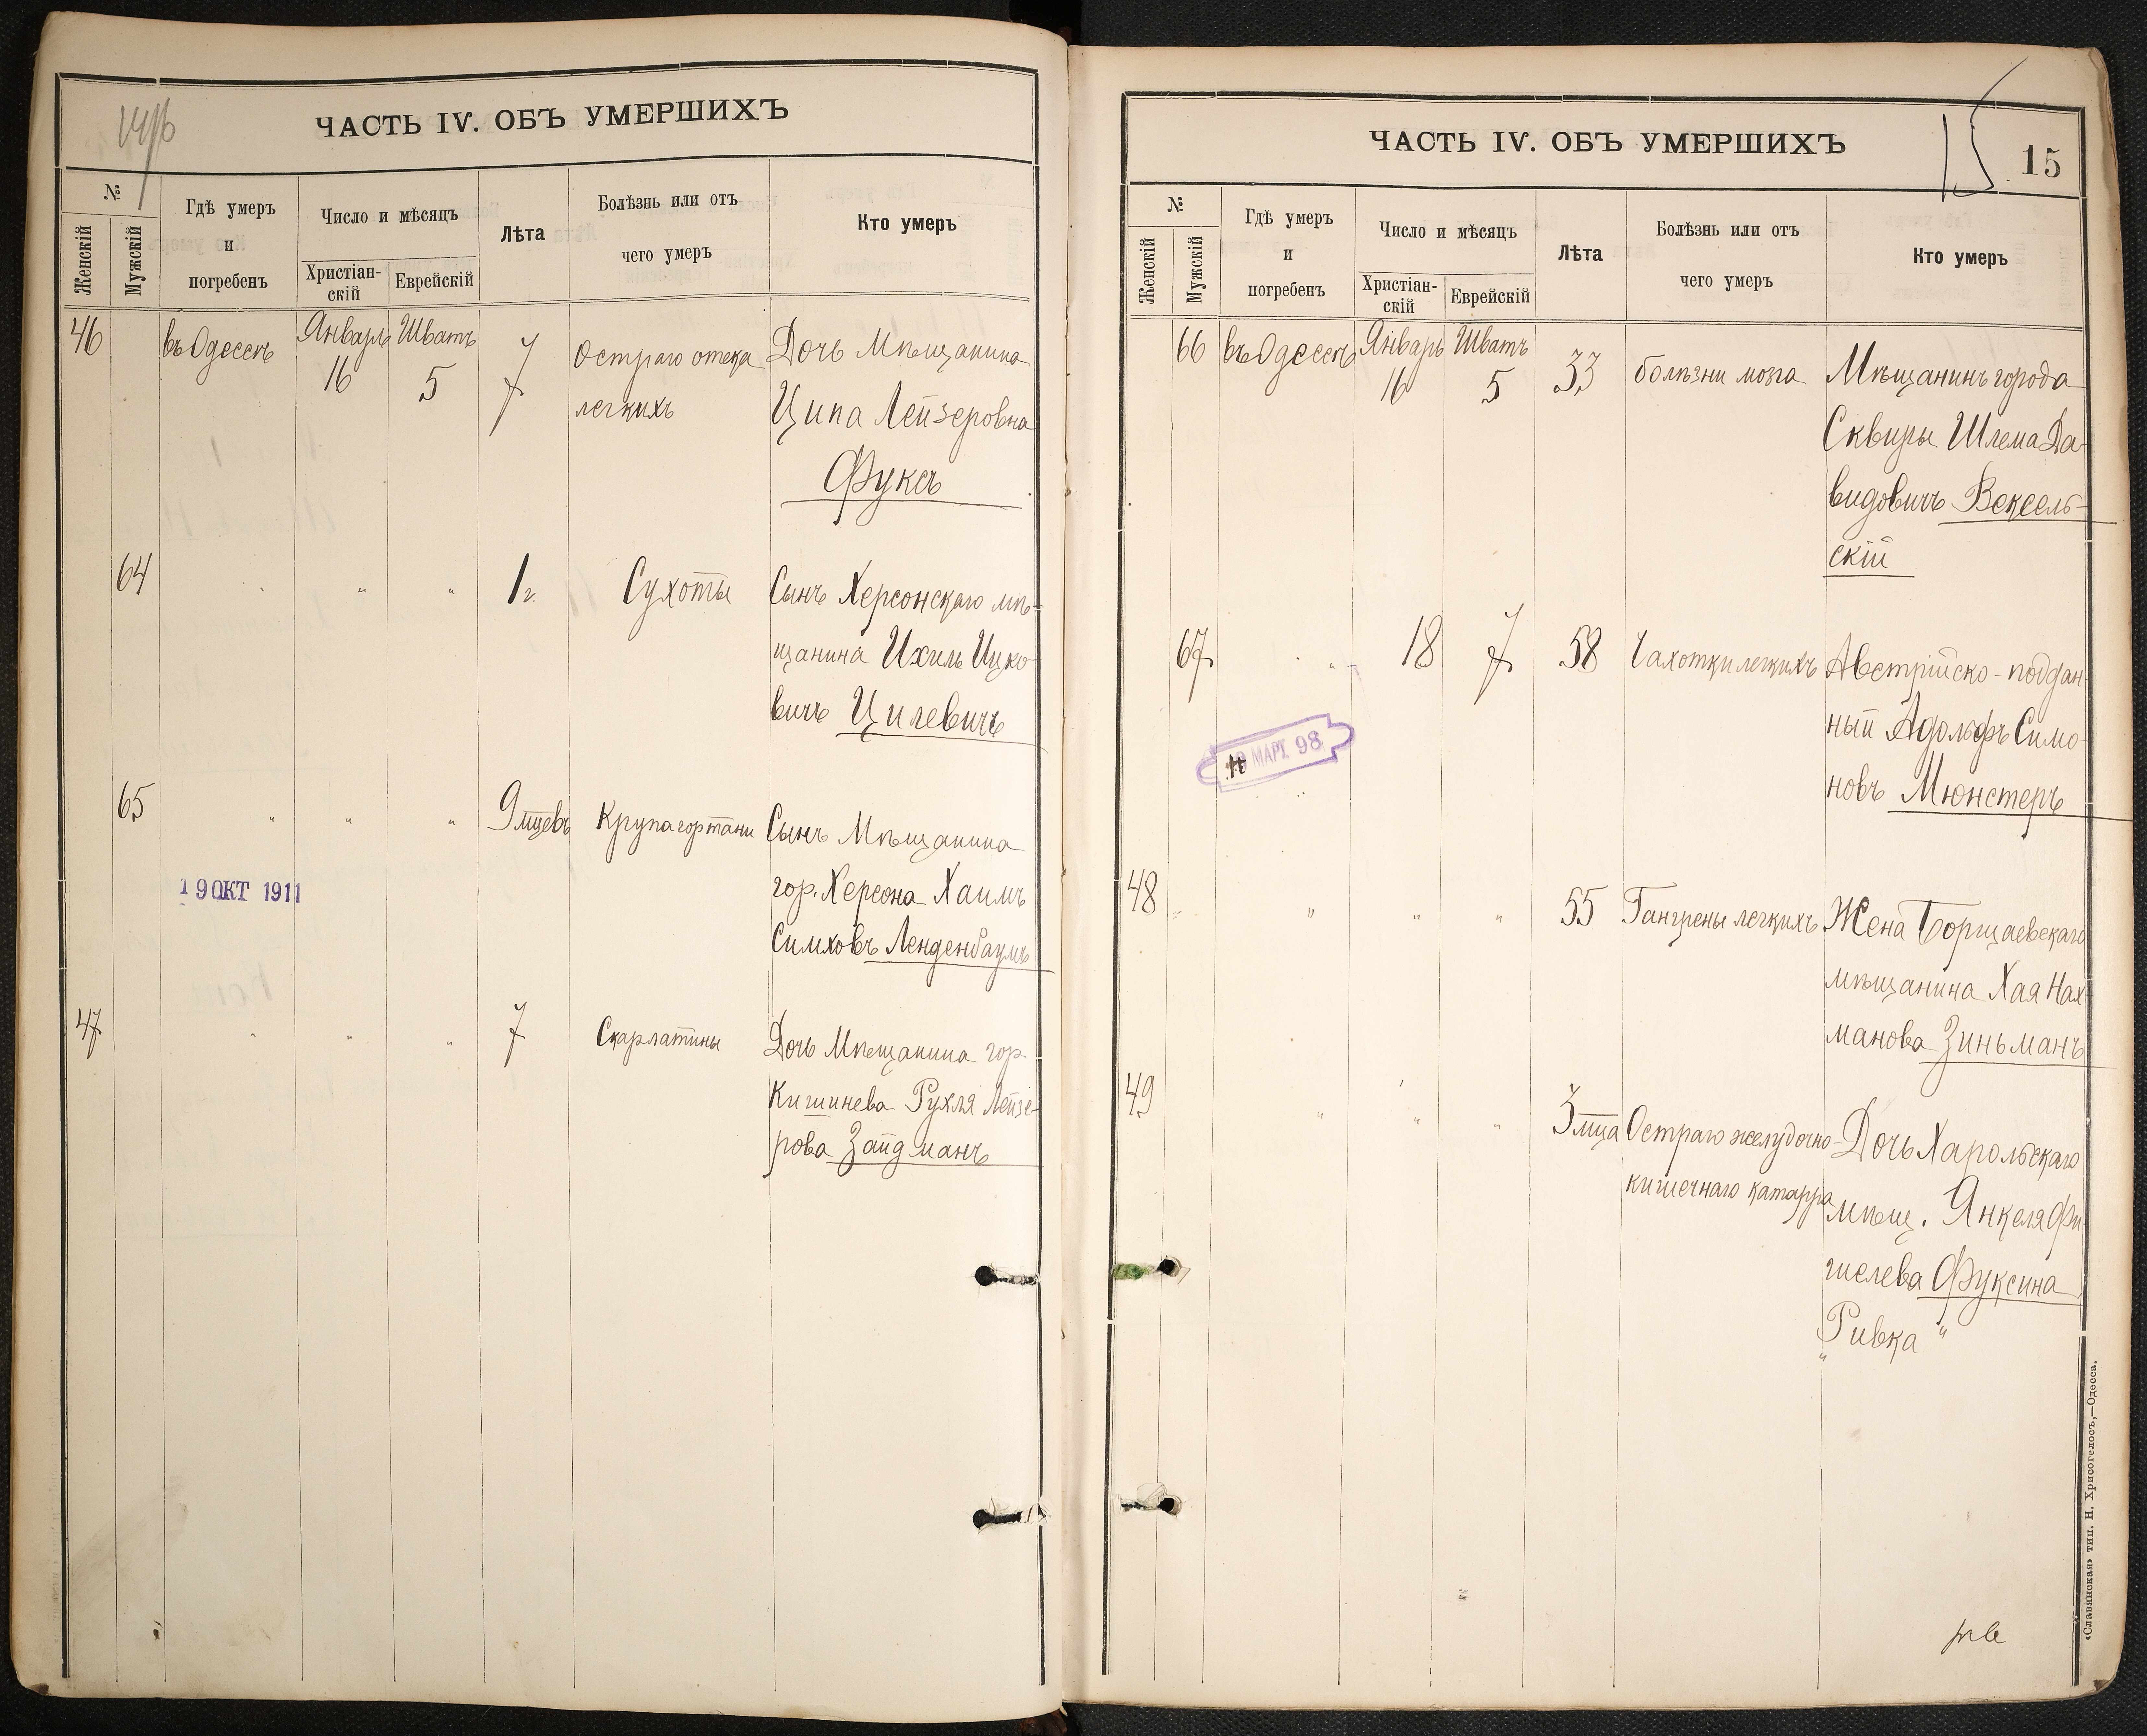 ЧАСТЬ IV. ОБЪ УМЕРШИХЪ
№
Женскій
Мужскій
Гдѣ умеръ
и
погребенъ
Число и мѣсяцъ
Христіан-
скій
Еврейскій
Лѣта
Болѣзнь или отъ
чего умеръ
Кто умеръ
46 въ Одессѣ Январь 16 Шватъ 5 7 Остраго отека Дочь Мѣщанина
легкихъ Ципа Лейзеровна
Фуксъ
64 " " " 1 г. Сухоты Сынъ Херсонскаго мѣ-
щанина Ихиль Ицко-
вичъ Цилевичъ
65 " " " 9 мцевъ Крупа гортани Сынъ Мѣщанина
гор. Херсона Хаимъ
Симховъ Ленденбаумъ
19 ОКТ 1911
47 " " " 7 Скарлатины Дочь Мѣщанина гор
Кишинева Рухля Лейзе-
рова Зайдманъ
ЧАСТЬ IV. ОБЪ УМЕРШИХЪ
15
15
№
Женскій
Мужскій
Гдѣ умеръ
и
погребенъ
Число и мѣсяцъ
Христіан-
скій
Еврейскій
Лѣта
Болѣзнь или отъ
чего умеръ
Кто умеръ
66 въ Одессѣ Январь 16 Шватъ 5 33 болѣзни мозга Мѣщанинъ города
Сквиры Шлема Да-
видовичъ Вексель-
скій
67 " 18 7 58 Чахотки легкихъ Австрійско-поддан-
ный Адольфъ Симо-
новъ Мюнстеръ
МАРТ 98
48 " " " 55 Гангрены легкихъ Жена Борщаевскаго
мѣщанина Хая Нах-
манова Зиньманъ
49 " " " 3 мца Остраго желудочно- Дочь Харольскаго
кишечнаго катарра мѣщ. Янкеля Фи-
шелева Фуксина
"Ривка"
«Славянская» тип. Н. Хрисогелосъ,—Одесса.